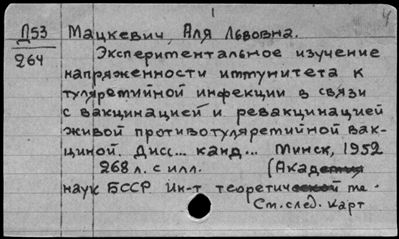 1
Д53 Мацкевич, Аля Львовна.
264 Экспериментальное изучение
напряженности иммунитета к
туляремийной инфекции в связи
с вакцинацией и ревакцинацией
живой противотуляремийной вак-
циной. Дисс... канд... Минск, 1952
268 л. с илл. (Академия
наук БССР Ин-т теоретической ме-
См. след. карт